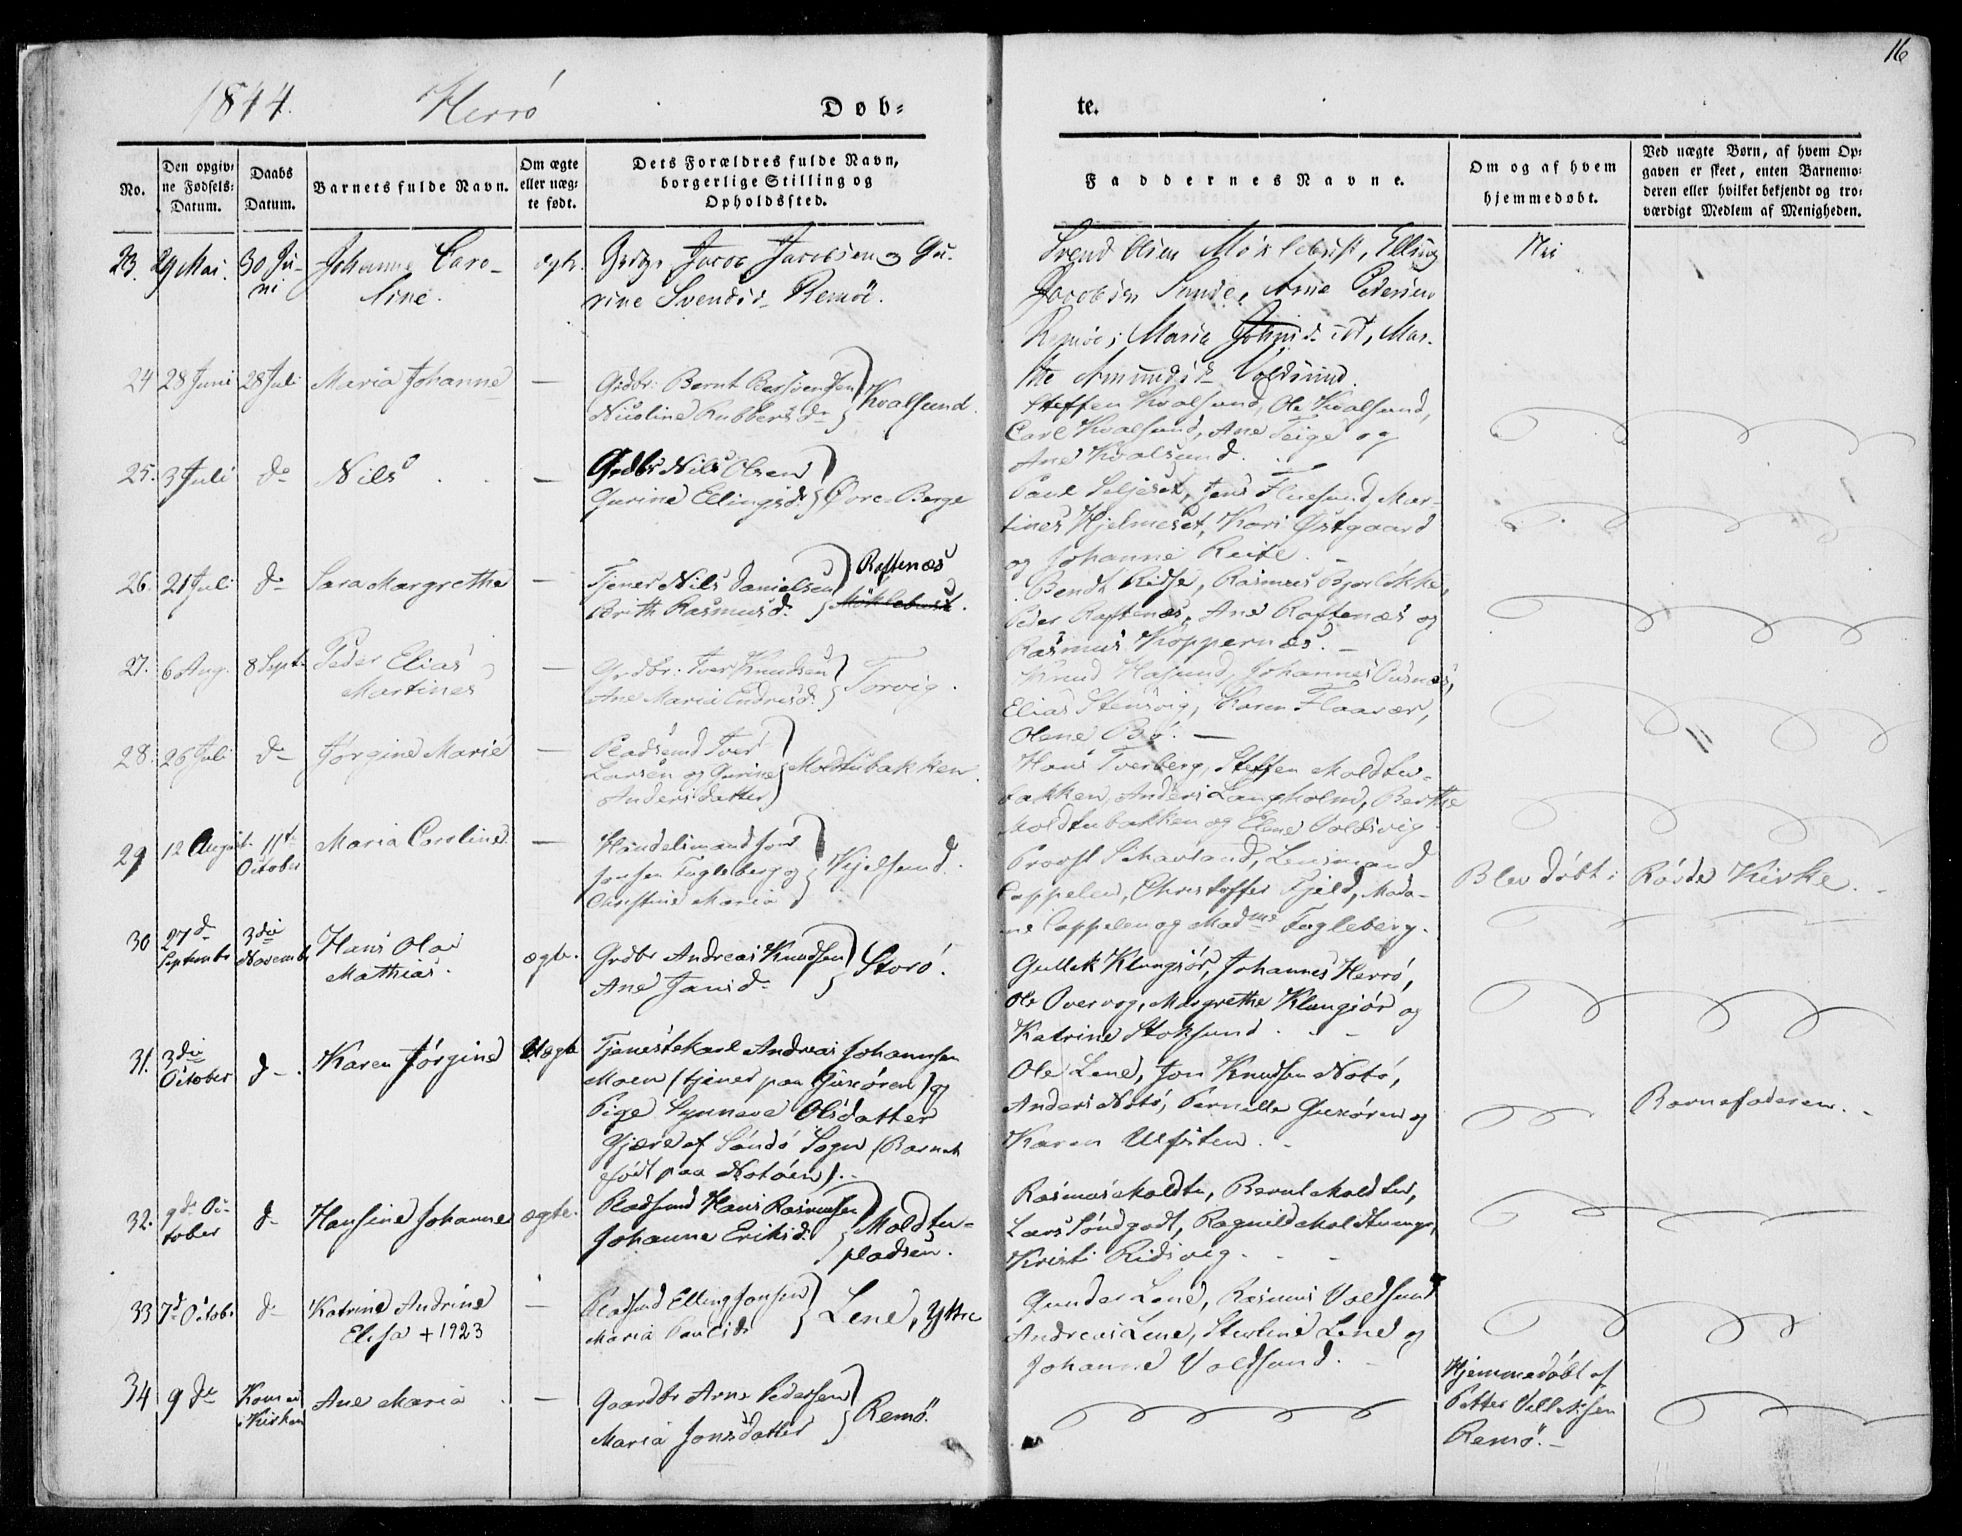 16
1844. Herrö Døb-
te.
No.
Den opgiv-
ne Fødsels-
Datum.
Daabs
Datum.
Barnets fulde Navn.
Om ægte
eller uæg-
te født.
Dets Forældres fulde Navn,
borgerlige Stilling og
Opholdssted.
Faddernes Navne.
Om og af hvem
hjemmedøbt.
Ved uægte Børn, af hvem Op-
gaven er skeet, enten Barnemo-
deren eller hvilket bekjendt og tro-
værdigt Medlem af Menigheden.
23. 29 Mai. 30 Ju-
ni
Johanne Caro-
line.
ægte.
Jacob Jacobsen og Gu-
rine Svendsd. Remöe.
Svend Olsen Möklebust, Elling
Jacobsen Sunde, Arne Pedersen
Remöe, Maria Johnsd. ibd, Mar-
the Amundsd. Voldsund.
Nei
24 28 Juni 28 Juli Maria Johanne —
Grdbr: Bernt
Nicoline Rubbertsd.
Kvalsund.
Steffen Kvalsund, Ole Kvalsund,
Carl Kvalsund, Ane Teige og
Ane Kvalsund.
25. 3 Juli do Nils —
Grdbr Nils Olsen
Gurine Ellingsd.
Øvre-Berge
Paul Seljeset, Jens Flusund, Mar-
tines Hjelmeset, Kari Østgaard
og Johanne Reite. —
26. 21 Juli do Sara Margrethe —
Tjener Nils Danielsen
Berith Rasmusd.
Raftenæs
Möklebust.
Bendt Ridse, Rasmus Bjerløkke,
Peder Raftenæs, Ane Raftenæs og
Rasmus Koppernæs. —
27. 6 Aug. 8 Septr Peder Elias
Martines
—
Grdbr: Iver Knudsen
Ane Maria Endresd.
Torvig.
Knud Hasund, Johannes
Elias Stensvig, Karen Flaavær,
Olene Bö. —
28. 26 Juli do Jørgine Marie —
Pladsmd Iver
Larsen og Gurine
Andersdatter
Moldtubakken.
Hans Tverberg, Steffen Moldtu-
bakken, Anders Langholm, Berthe
Moldtubakken og Elene Voldsvig
29 12 August. 11te
October
Maria Caroline —
Handelsmand Jens
Jonsen Fugleberg og
Christine Maria
Kjelsund.
Provst Schavland, Lensmand
Cappelen, Christoffer Fjeld, Mada-
me Cappelen og Madme Fugleberg.
Blev döbt i Røvde Kirke.
30 27d
September
3die
November
Hans Olai
Mathias.
ægte.
Grdbr Andreas Knudsen
Ane Jansd.
Storö.
Gullik Klungsör, Johannes Herrö,
Ole Overvog, Margrethe Klungsör og
Katrine Stoksund.
31. 3die
October
do Karen Jörgine Uægte
Tjenestekarl Andreas Johannsen
Moen (tjener paa Gurskøen) og
Pige Synneve Olsdatter
Gjære af Sandö Sogn (Barnet
født paa Notöen).
Ole Lene, Jon Knudsen Notö,
Anders Notö, Pernille og
Karen Ulfsten.
Barnefaderen.
32. 9de Oc-
tober
do Hansine Johanne ægte.
Pladsmd Hans Rasmusen
Johanne Eriksd.
Moldtu-
pladsen.
Rasmus Moldtu, Bernt Moldtu,
Lars Søndgodt, Ragnild Moldtunge,
Kristi Ridsvig.
33 7d October do Katrine Andrine
Elisa +1923
—
Pladsmd Elling Jonsen
Maria Paulsd.
Lene, Yttre
Gunder Lene, Rasmus Voldsund
Andreas Lene, Sterline Lene og
Johanne Voldsund.
34 9 do Kom ei
i Kirken
Ane Maria —
Gaardbr Arne Pedersen
Maria Jonsdatter
Remö.
Hjemmedöbt af
Petter Villiksen
Remö. —